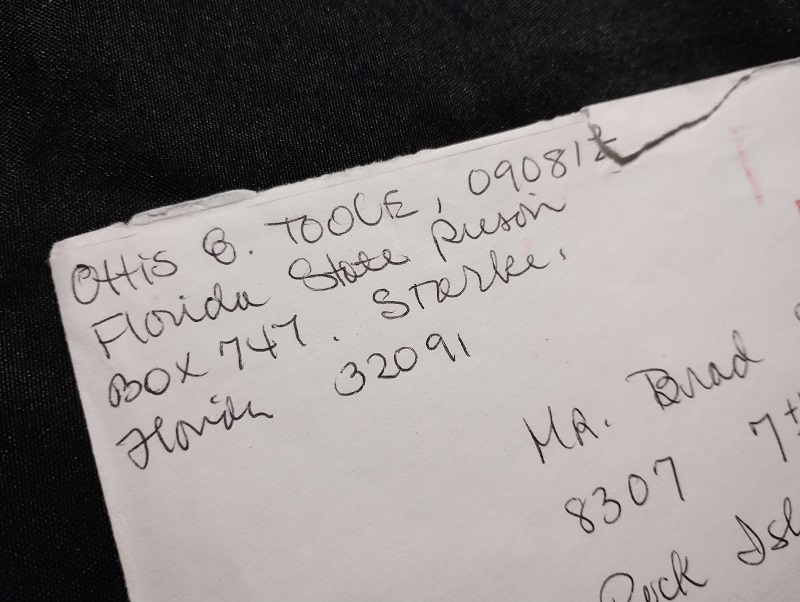 Ottis E. TOOLE, 090812
Florida State Prison
BOX 747. Starke,
Florida 32091
MR. Brad
8307 7th
Rock Isl